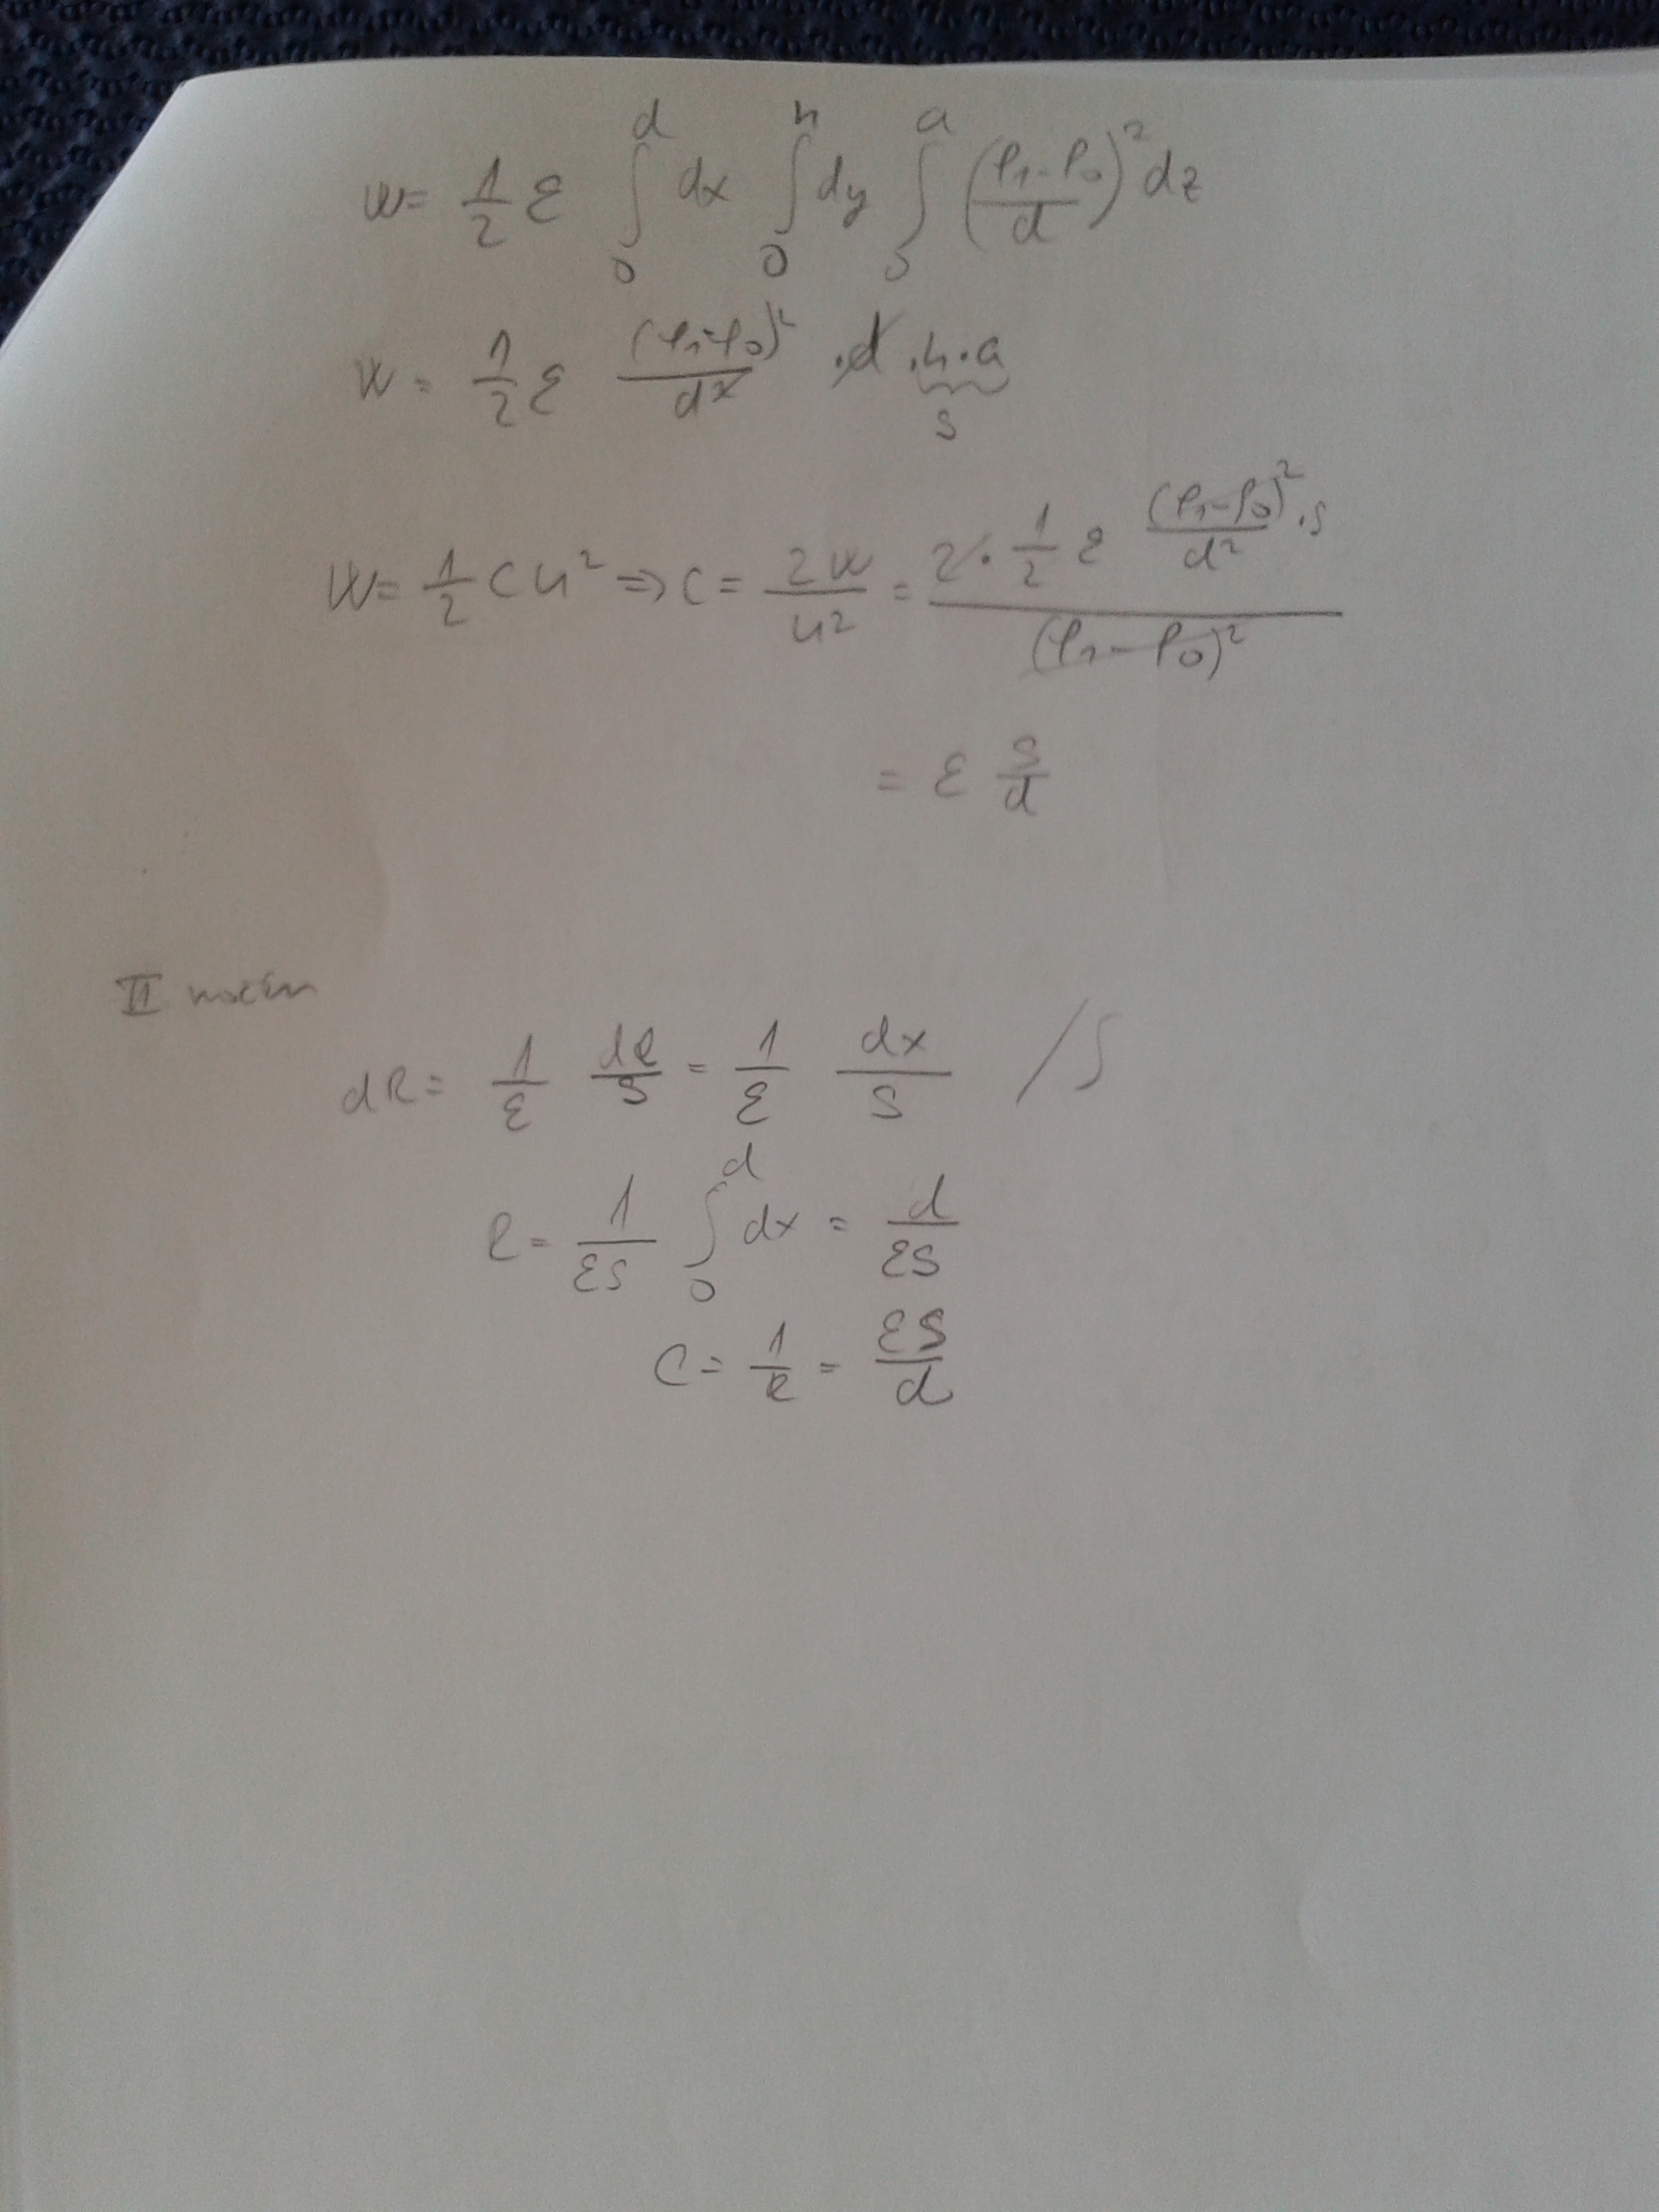 W = \frac{1}{2} ε \int_0^d dx \int_0^h dy \int_0^a (\frac{φ_1 - φ_0}{d})^2 dz
W = \frac{1}{2} ε \frac{(φ_1 - φ_0)^2}{d^2} · d · h · a
S
W = \frac{1}{2} C U^2 ⇒ C = \frac{2W}{U^2} = \frac{2 · \frac{1}{2} ε \frac{(φ_1 - φ_0)^2}{d^2} · S}{(φ_1 - φ_0)^2}
= ε \frac{S}{d}
II
dR = \frac{1}{ε} \frac{dl}{S} = \frac{1}{ε} \frac{dx}{S} / ∫
R = \frac{1}{εS} \int_0^d dx = \frac{d}{εS}
C = \frac{1}{R} = \frac{εS}{d}